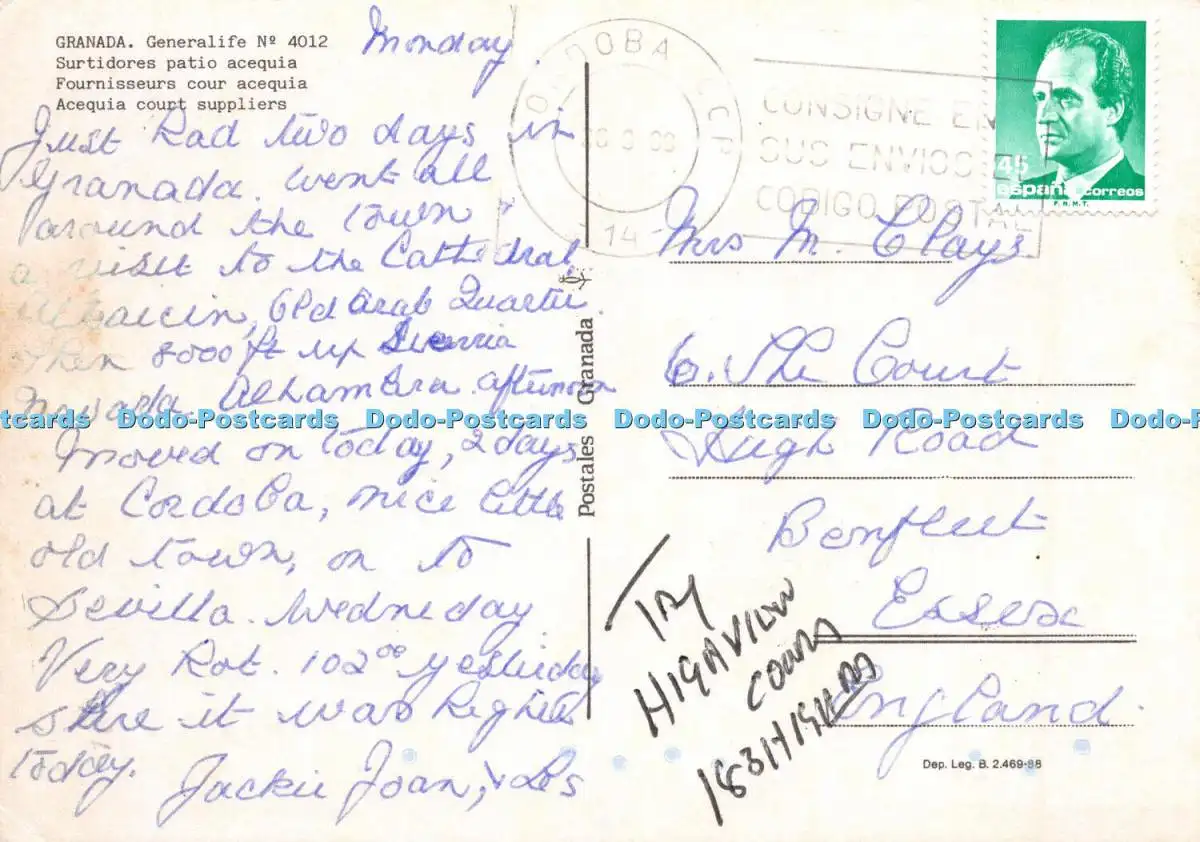 GRANADA. Generalife Nº 4012
Surtidores patio acequia
Fournisseurs cour acequia
Acequia court suppliers
Monday
Just had two days in
Granada. went all
around the town
a visit to the Cathedral
Albaicin, Old Arab Quarter
then 8000 ft up
Nevada. Alhambra afternoon
Moved on today, 2 days
at Cordoba, nice little
old town, on to
Sevilla. Wednesday
Very hot. 102º yesterday
sure it was higher
today.
Jackie Joan, & Les
Postales Granada
CORDOBA
14
CONSIGNE EN
SUS ENVIOS
CODIGO POSTAL
45
españa correos
F.N.M.T.
Mrs M. Clays.
6. The Court
High Road
Benfleet
Essex
England.
TRY
HIGHVIEW
COURT
183 HIGH RD
Dep. Leg. B. 2.469-88
Dodo-Postcards Dodo-Postcards Dodo-Postcards